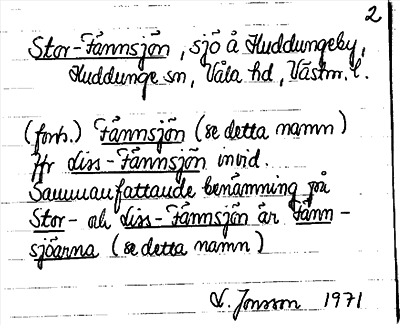 2
Stor-Fännsjön, sjö å Huddungeby,
Huddunge sn, Våla hd, Västm. l.
(forts.) Fännsjön (se detta namn)
Jfr Liss-Fännsjön invid.
Sammanfattande benämning på
Stor- och Liss-Fännsjön är Fänn-
sjöarna (se detta namn)
V. Jonsson 1971